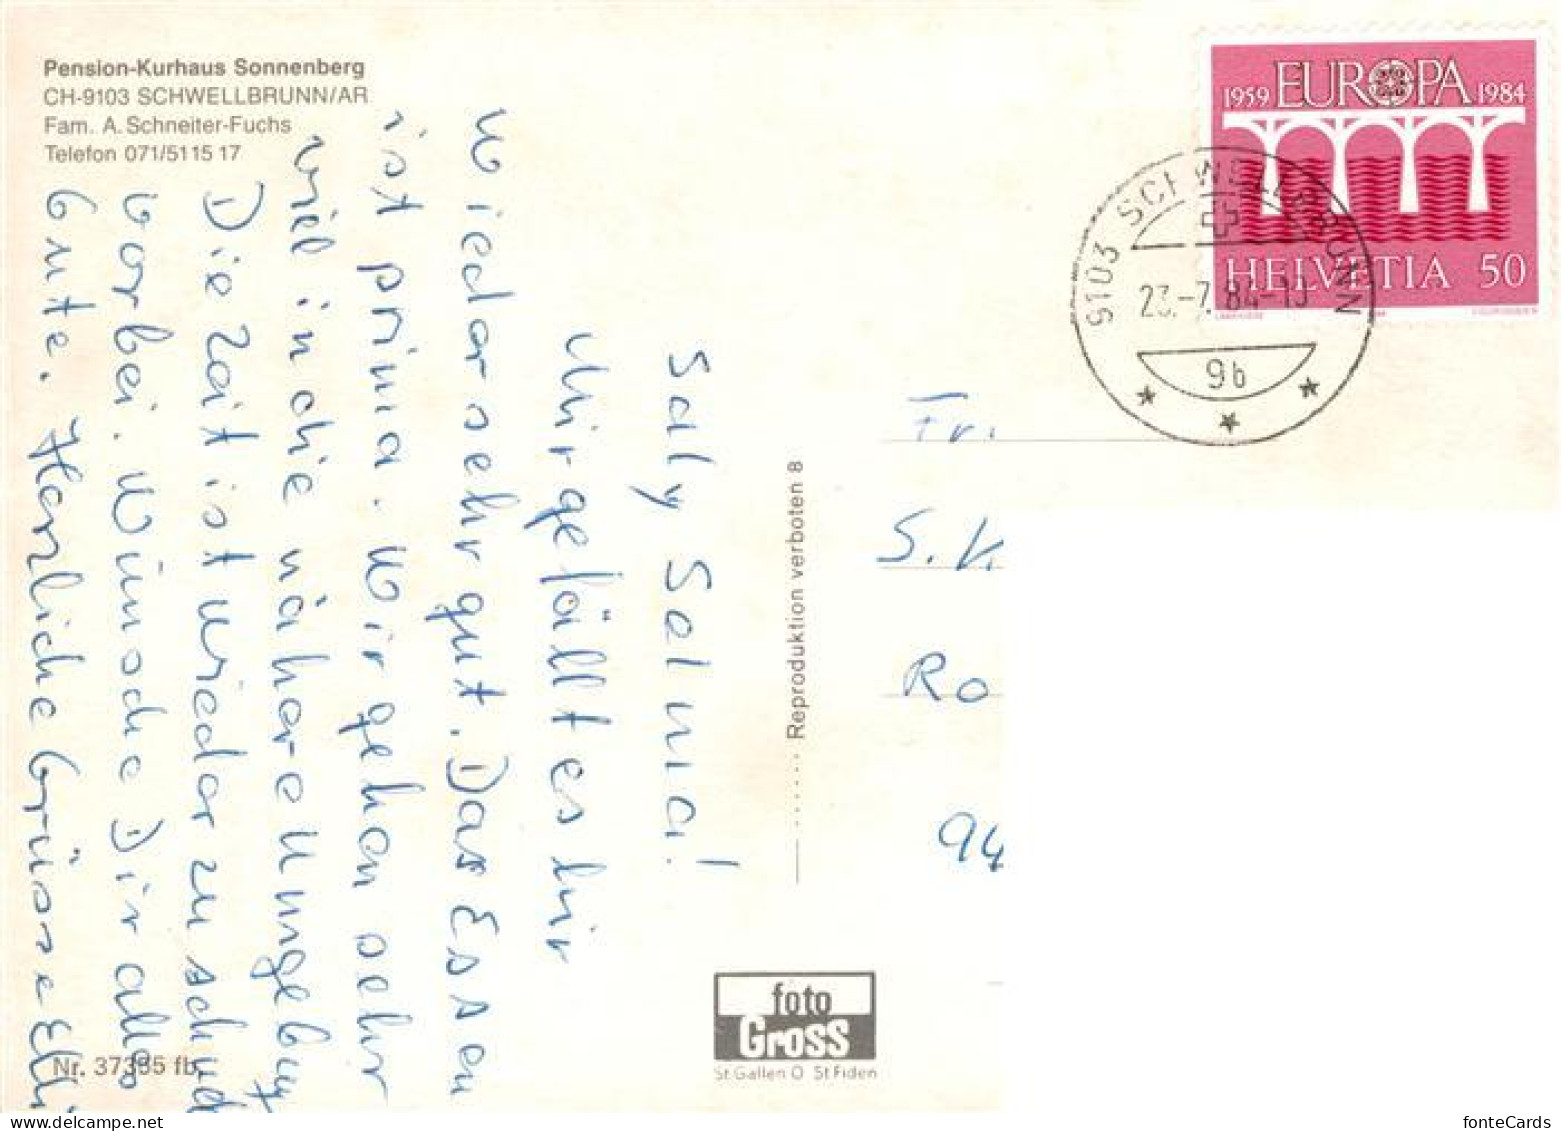 Pension-Kurhaus Sonnenberg
CH-9103 SCHWELLBRUNN/AR
Fam. A. Schneiter-Fuchs
Telefon 071/51 15 17
Saly Selma!
Mir gefällt es hir
wieder sehr gut. Das Essen
ist prima. Wir gehen sehr
viel in die nähere Umgebung
Die Zeit ist wieder zu schnell
vorbei. Wünsche Dir alles
Gute. Herzliche Grüsse Elli
Nr. 37385 fb.
Reproduktion verboten 8
foto
Gross
St Gallen O St Fiden
1959 EUROPA 1984
HELVETIA 50
9103 SCHWELLBRUNN
23.-7.84-10
9b
Fr.
S. K
Ro
94
delcampe.net
fonteCards